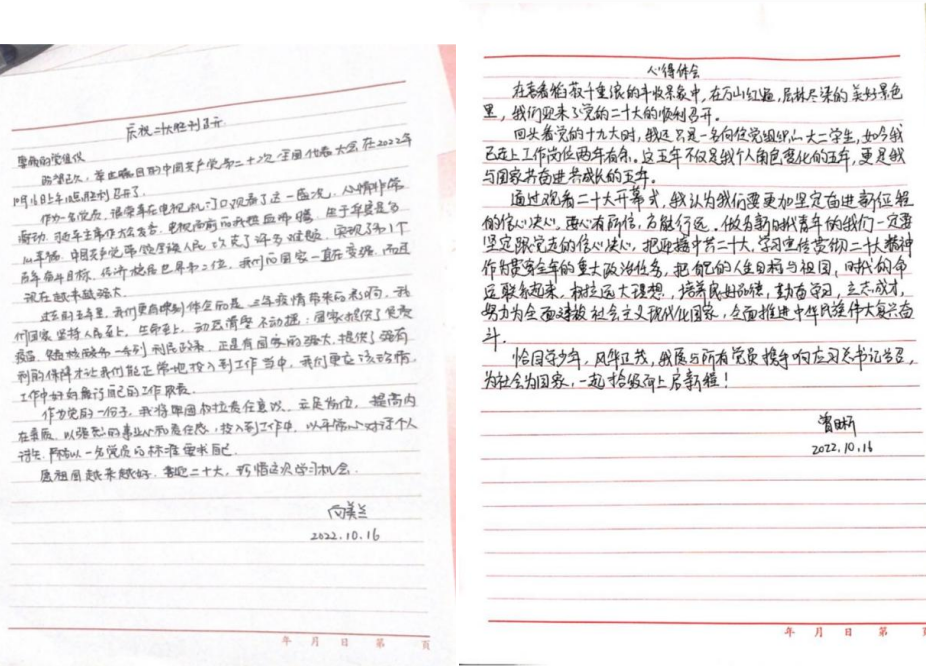 庆祝二十大胜利召开
尊敬的党组织
盼望已久,举世瞩目的中国共产党第二十次全国代表大会在2022年
10月16日上午10点胜利召开了。
作为一名党员,很荣幸在电视机门口观看了这一盛况,心情非常
激动,习近平主席作大会报告,电视而前的我热血沸腾,
以幸福,中国共产党带领全族人民,攻克了许多难题,实现了第1个
百年奋斗目标,经济总量世界第二位,我们的国家一直在变强,而且
现在越来越强大。
过去的五年里,我们更有特别体会的是,三年疫情带来的影响,我
们国家坚持人民至上,生命至上,动态清零不动摇;国家提供了免费
疫苗,一系列利民政策,正是有国家的强大,提供了强有
利的保障才让我们能正常地投入到工作当中,我们更应该珍惜,
工作中好好履行自己的工作职责。
作为党的一份子,我将牢固树立责任意识,立足岗位,提高内
在素质,以强烈的事业心和责任感,投入到工作中,以平常心对待个人
得失,时刻以一名党员的标准要求自己。
愿祖国越来越好,喜迎二十大,珍惜这次学习机会。
向美兰
2022.10.16
年 月 日 第 页
心得体会
在看着稻菽千重浪的丰收景象中,在万山红遍,层林尽染的美好景色
里,我们迎来了党的二十大的顺利召开。
回头看党的十九大时,我还只是一名向往党组织的大二学生,如今我
已走上工作岗位两年有余。这五年不仅是我个人角色变化的五年,更是我
与国家共奋进共成长的五年。
通过观看二十大开幕式,我认为我们要更加坚定奋进新征程
的信心决心,要心有所信,方能行远。做为新时代青年的我们一定要
坚定跟党走的信心决心,把迎接中共二十大,学习宣传贯彻二十大精神
作为贯穿全年的重大政治任务,把自己的人生目标与祖国,时代的命
运联系起来,树立远大理想,培养良好品德,勤奋学习,立志成才,
努力为全面建设社会主义现代化国家,全面推进中华民族伟大复兴奋
斗。
恰同学少年,风华正茂,我愿与所有党员携手响应习总书记号召,
为社会为国家,一起拾级而上启新程!
曾田析
2022.10.16
年 月 日 第 页